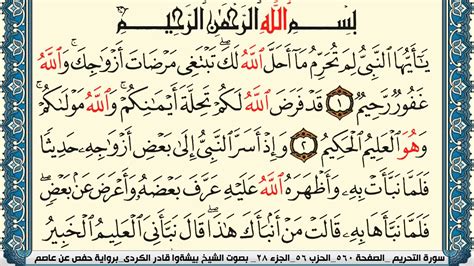 بِسْمِ اللَّهِ الرَّحْمَٰنِ الرَّحِيمِ
يَا أَيُّهَا النَّبِيُّ لِمَ تُحَرِّمُ مَا أَحَلَّ اللَّهُ لَكَ تَبْتَغِي مَرْضَاتَ أَزْوَاجِكَ وَاللَّهُ
غَفُورٌ رَّحِيمٌ ١ قَدْ فَرَضَ اللَّهُ لَكُمْ تَحِلَّةَ أَيْمَانِكُمْ وَاللَّهُ مَوْلَاكُمْ
وَهُوَ الْعَلِيمُ الْحَكِيمُ ٢ وَإِذْ أَسَرَّ النَّبِيُّ إِلَىٰ بَعْضِ أَزْوَاجِهِ حَدِيثًا
فَلَمَّا نَبَّأَتْ بِهِ وَأَظْهَرَهُ اللَّهُ عَلَيْهِ عَرَّفَ بَعْضَهُ وَأَعْرَضَ عَن بَعْضٍ
فَلَمَّا نَبَّأَهَا بِهِ قَالَتْ مَنْ أَنبَأَكَ هَٰذَا قَالَ نَبَّأَنِيَ الْعَلِيمُ الْخَبِيرُ
سورة التحريم _ الصفحة ٥٦٠_ الحزب ٥٦_ الجزء ٢٨_ بصوت الشيخ بيشةوا قادر الكردى_ برواية حفص عن عاصم